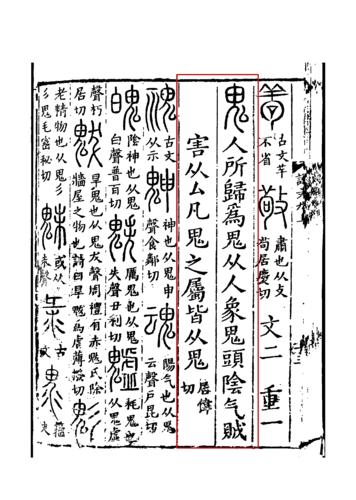 古文羊不省 敬 肅也从攴茍居慶切 文二 重一
鬼 人所歸爲鬼从人象鬼頭陰气賊
害从厶凡鬼之屬皆从鬼 居偉切
古文从示 䰠 神也从鬼申聲食鄰切 魂 陽气也从鬼云聲戶昆切
魄 陰神也从鬼白聲普百切 厲鬼也从鬼失聲丑利切 魖 耗鬼也从鬼虛
聲朽居切 魃 旱鬼也从鬼犮聲周禮有赤魃氏除牆屋之物也詩曰旱魃爲虐蒲撥切 鬽
老精物也从鬼彡彡鬼毛密祕切 魅 或从未聲 古文 籀文